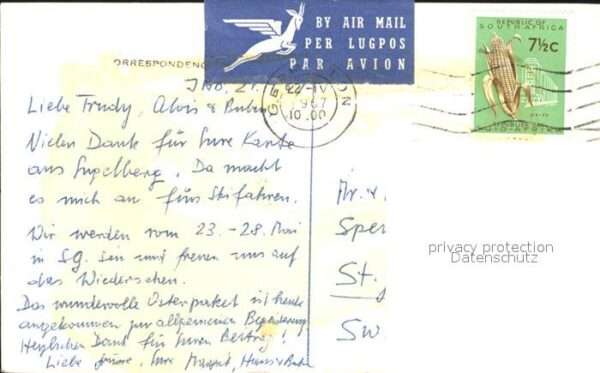 BY AIR MAIL
PER LUGPOS
PAR AVION
REPUBLIC OF
SOUTH AFRICA
7½C
ORRESPONDENC
IV
1967
10.00
Liebe Trudy, Alois &
Vielen Dank für Eure Karte
aus Engelberg. Da macht
es mich an fürs Skifahren.
Wir werden vom 23.-28. Mai
in S.G. sein und freuen uns auf
das Wiedersehen.
Das wundervolle Osterpaket ist heute
angekommen zur allgemeinen Begeisterung
Herzlichen Dank für Euren Beitrag!
Liebe Grüsse, Eure
Mr. &
St.
Sw
privacy protection
Datenschutz